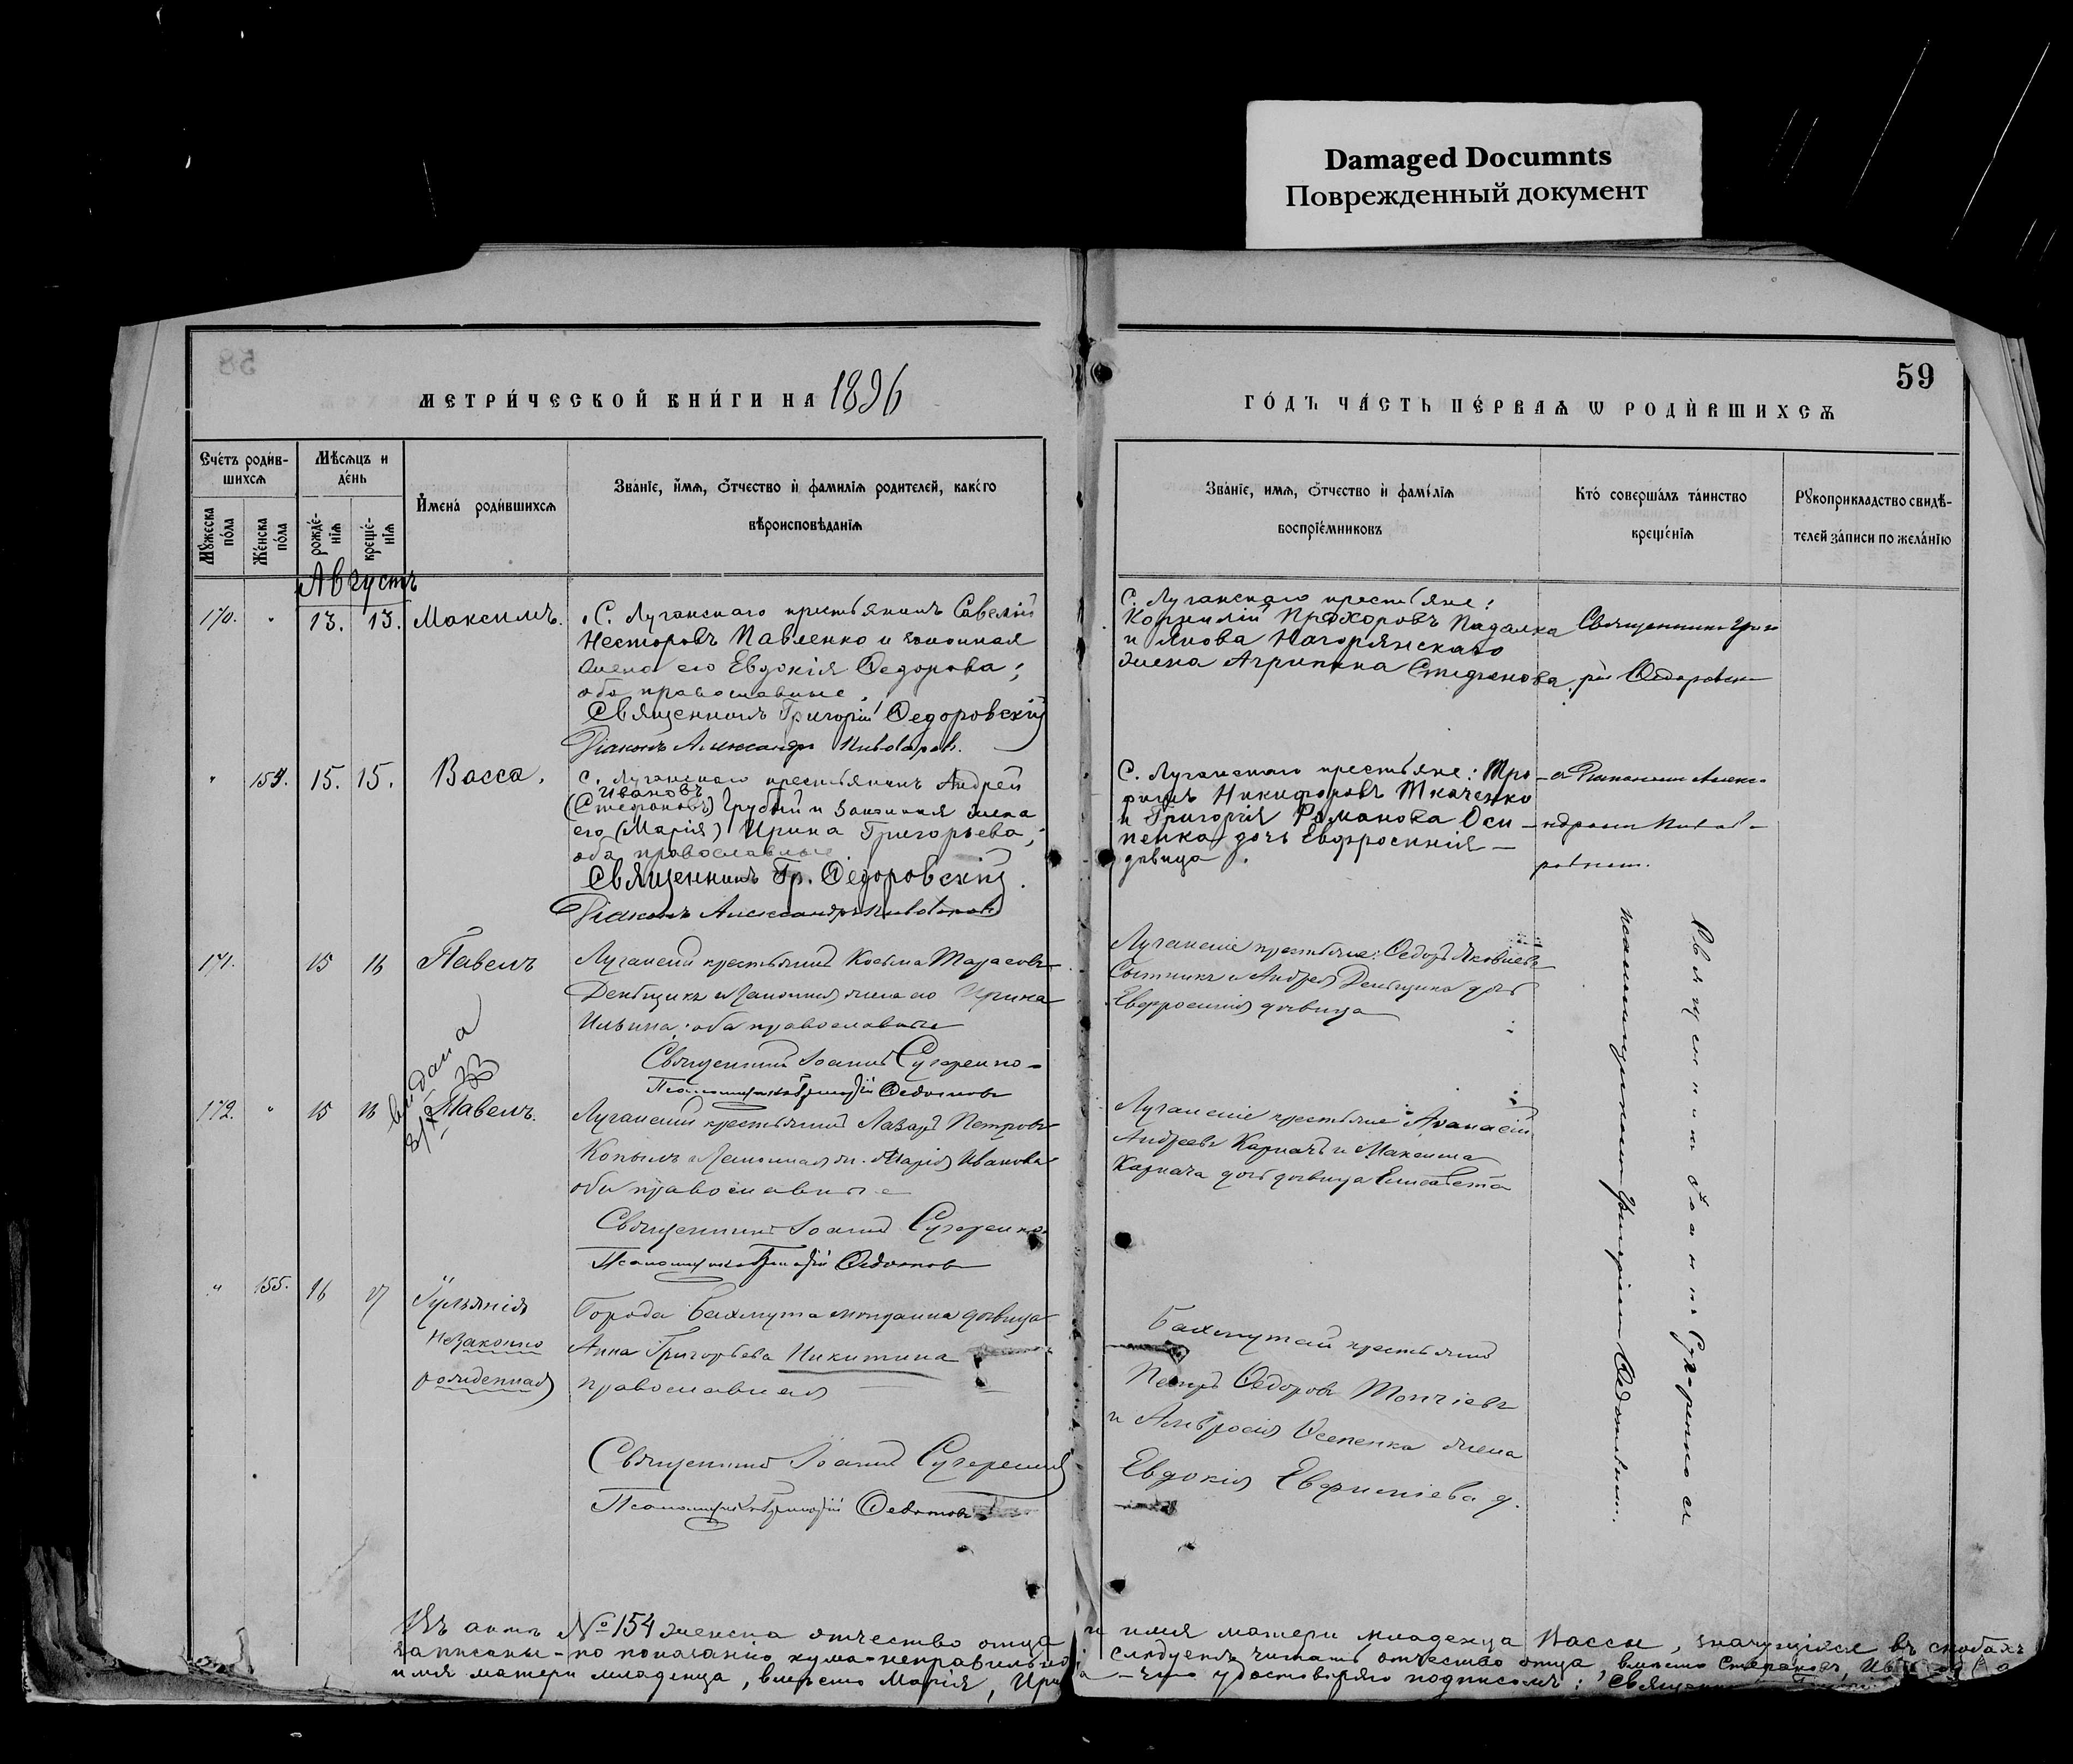 Damaged Documnts
Поврежденный документ
58
МЕТРИ́ЧЕСКОЙ КНИ́ГИ НА 1896
ГО́ДЪ ЧА́СТЬ ПЕ́РВАѦ Ѡ РОДИ́ВШИХСѦ
59
Сче́тъ роди́в-
шихсѧ
Мꙋ́жеска по́ла
Же́нска по́ла
Мѣ́сѧцъ и
де́нь
рожде́-
нїѧ
креще́-
нїѧ
И҆мена̀ роди́вшихсѧ
Зва́нїе, и҆́мѧ, о҆́тчество и҆ фамилїѧ родителей, како́го
вѣроисповѣ́данїѧ
Зва́нїе, имѧ, о҆́тчество и҆ фами́лїѧ
воспрїе́мниковъ
Кто̀ соверша́лъ та́инство
креще́нїѧ
Рꙋкоприкладство свидѣ́-
телей за́писи по жела́нїю
Августъ
170. " 13. 13. Максимъ.
С. Луганскаго крестьянинъ Савелій
Несторовъ Павленко и законная
жена его Евдокія Ѳедорова;
оба православные.
Священникъ Григорій Ѳедоровскій
Діаконъ Александръ Пивоваровъ.
С. Луганскаго крестьяне:
Корнилій Прохоровъ Падалка
и Якова Нагорянскаго
жена Агрипина Стефанова.
Священникъ Григо
рій Ѳедоровскі
" 154. 15. 15. Васса.
С. Луганскаго крестьянинъ Андрей
Ивановъ
(Стефановъ) Грубый и законная жена
его (Марія) Ирина Григорьева;
оба православные.
Священникъ Гр. Ѳедоровскій.
Діаконъ Александръ Пивоваровъ
С. Луганскаго крестьяне: Тро-
фимъ Никифоровъ Ткаченко
и Григорія Романова Оси-
пенка дочь Евфросинія-
дѣвица.
171. 15 16 Павелъ
Луганскій крестьянинъ Косьма Тарасовъ
Деньщикъ и законная жена его Ирина
Ильина; оба православные
Священникъ Іоаннъ Сухаренко-
Псаломщикъ Григорій
Луганскіе крестьяне: Ѳедоръ Яковлевъ
Сытникъ и Андрея Деньщика дочь
Евфросинія дѣвица
выдана
172. " 15 16 Павелъ.
Луганскій крестьянинъ Лазарь Петровъ
Копылъ и законная ж. Марія Иванова
оба православные
Священникъ Іоаннъ Сухаренко.
Псаломщикъ Григорій
Луганскіе крестьяне Аѳанасій
Андреевъ Карначъ и Максима
Карнача дочь дѣвица Елисавета
" 155. 16 17 Іуліанія
незаконно
рожденная
Города Бахмута мѣщанка дѣвица
Анна Григорьева Никитина
православная
Священникъ Іоаннъ Сухаренко
Псаломщикъ Григорій
Бахмутскій крестьянинъ
Петръ Ѳедоровъ
и Амвросія Осепенка жена
Евдокія
Священникъ Іоаннъ Сухаренко съ
псаломщикомъ Григоріемъ
Въ актѣ № 154 женска отчество отца и имя матери младенца Вассы, значущіяся въ скобахъ
записаны-по показанію кума-неправильно, слѣдуетъ читать отчество отца, вмѣсто Стефановъ,
имя матери младенца, вмѣсто Марія, Ирина-что удостовѣряю подписомъ: